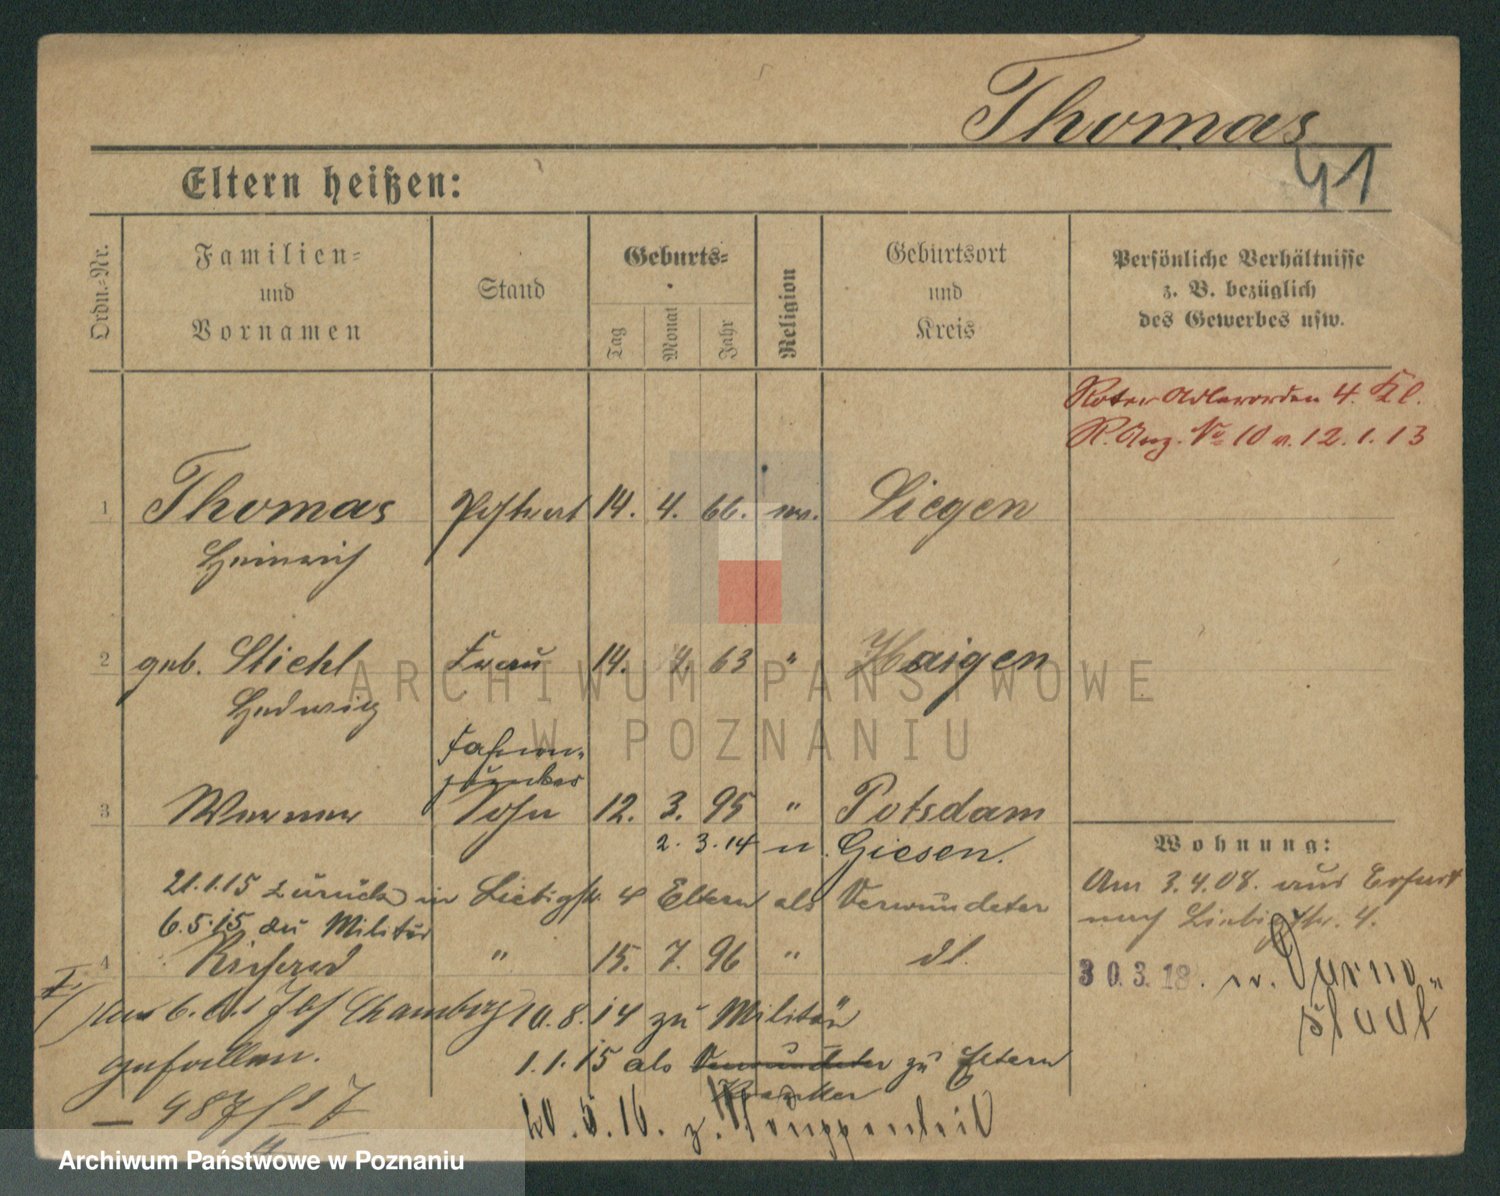 Thomas
41
Eltern heißen:
Ordn.-Nr.
Familien-
und
Vornamen
Stand
Geburts-
Tag
Monat
Jahr
Religion
Geburtsort
und
Kreis
Persönliche Verhältnisse
z. B. bezüglich
des Gewerbes usw.
Roter Adlerorden 4. Kl.
R. Anz. No 10 v. 12.1.13
1 Thomas Postrat 14. 4. 66. ev. Siegen
Heinrich
2 geb. Stiehl Frau 14. 63 " Haigen
Hedwig
Fahnen-
junker
3 Werner Sohn 12. 3. 95 " Potsdam
2. 3. 14 n. Giesen.
Wohnung:
21.1.15 zurück in Liebigstr. 4 Eltern als Verwundeter
Am 3.4.08. aus Erfurt
nach Liebigstr. 4.
6.5.15 zu Militär
4 Richard " 15. 7. 96 " dt.
30.3.18. n. Darm-
stadt
10.8.14 zu Militär
gefallen.
1.1.15 als Verwundeter zu Eltern
Kranker
487/17
20.5.16. z.
ARCHIWUM PAŃSTWOWE
W POZNANIU
Archiwum Państwowe w Poznaniu